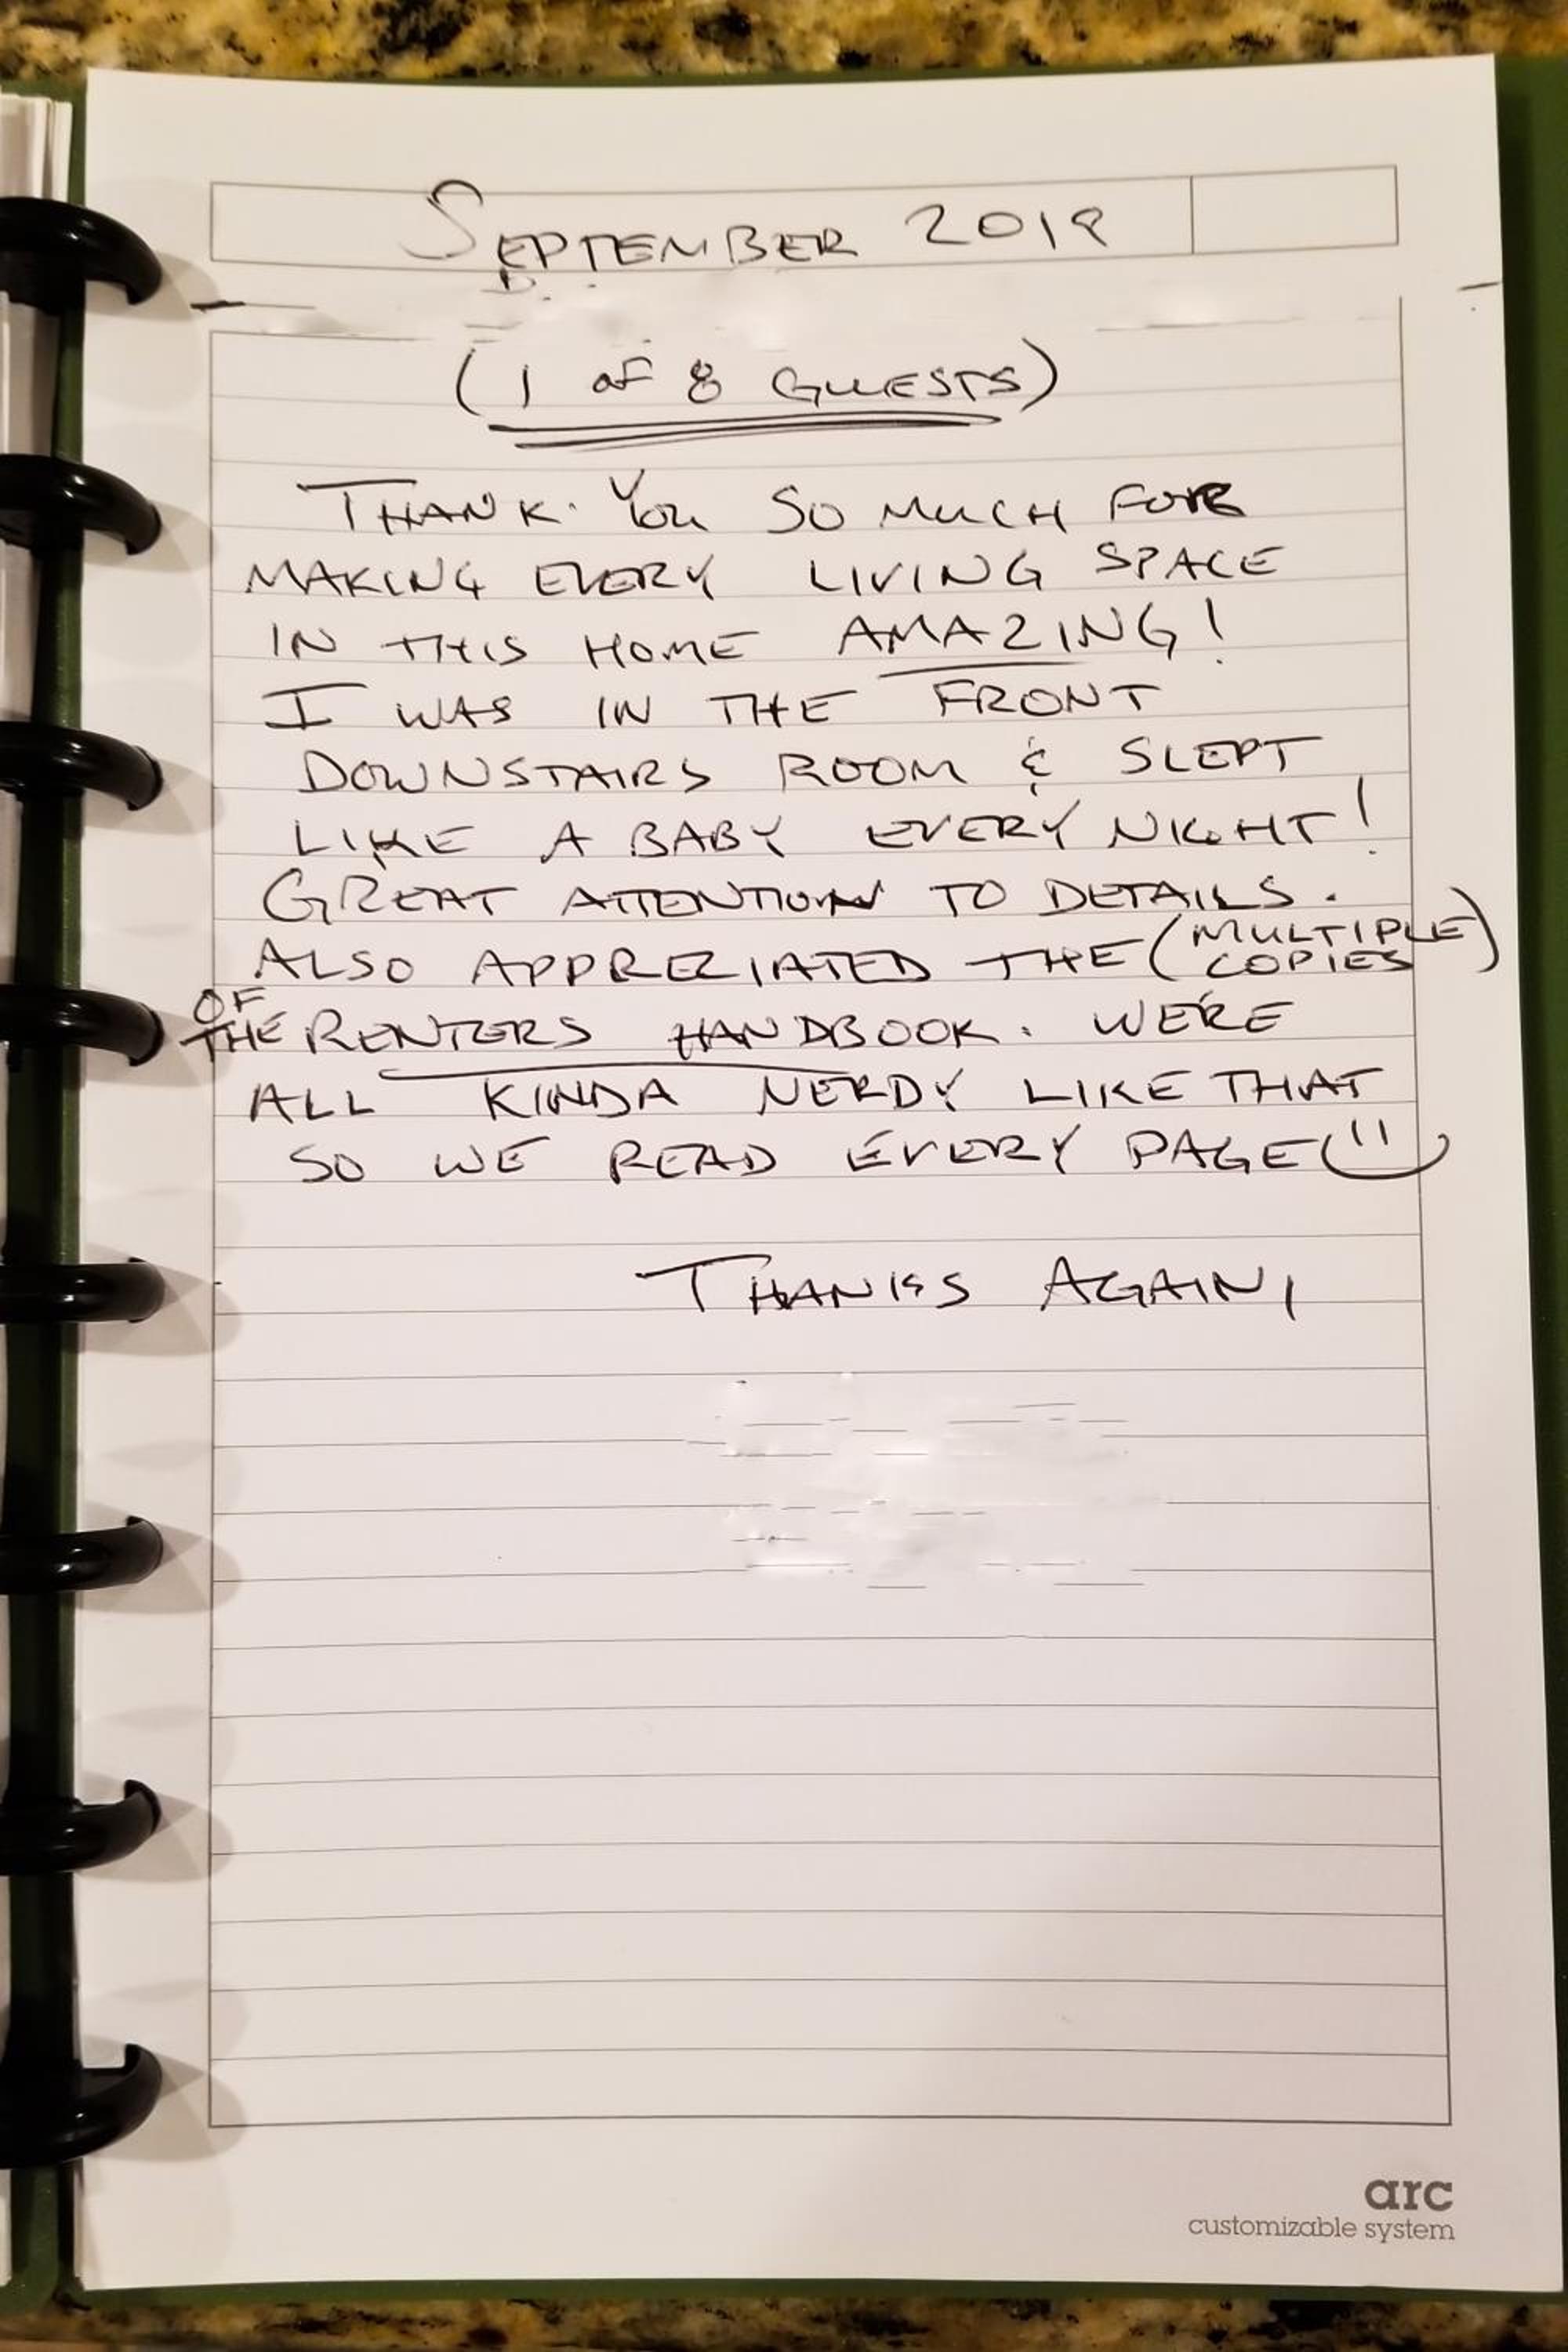 SEPTEMBER 2019
(1 of 8 GUESTS)
THANK YOU SO MUCH FOR
MAKING EVERY LIVING SPACE
IN THIS HOME AMAZING!
I WAS IN THE FRONT
DOWNSTAIRS ROOM & SLEPT
LIKE A BABY EVERY NIGHT!
GREAT ATTENTION TO DETAILS.
ALSO APPRECIATED THE (MULTIPLE COPIES)
OF THE RENTERS HANDBOOK. WE'RE
ALL KINDA NERDY LIKE THAT
SO WE READ EVERY PAGE
THANKS AGAIN,
arc
customizable system